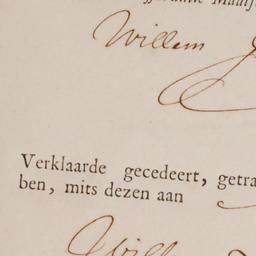 Willem
Verklaarde gecedeert, getra
ben, mits dezen aan
Will